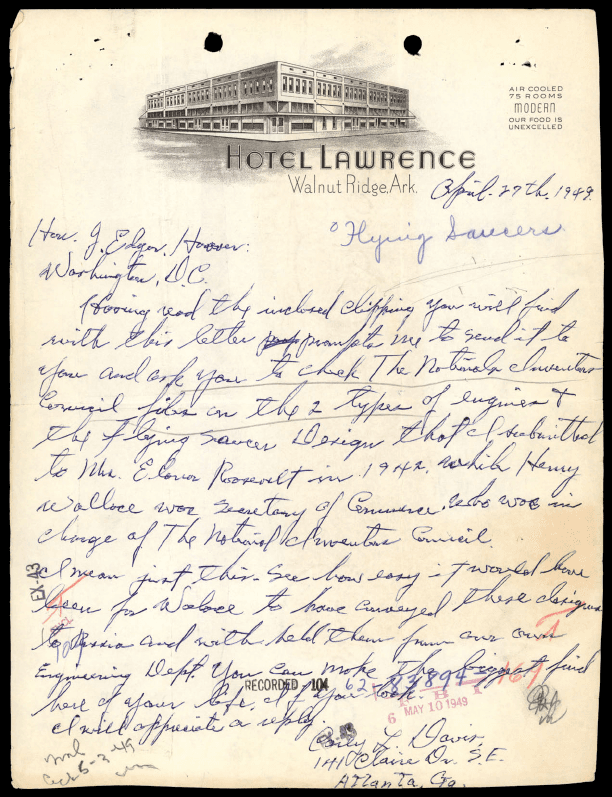 AIR COOLED
75 ROOMS
MODERN
OUR FOOD IS
UNEXCELLED
HOTEL LAWRENCE
Walnut Ridge, Ark.
April. 27th. 1949.
"Flying Saucers
Hon. J. Edgar. Hoover:
Washington, D.C.
Having read the inclosed clipping you will find
with this letter prompts me to send it to
you and ask you to check The National Inventors
Council files on the 2 types of engines &
the Flying Saucer Design that I submitted
to Mrs. Elonor Roosevelt in 1942. while Henry
Wallace was Secretary of Commerce. who was in
charge of The National Inventors Council.
I mean just this. See how easy it would have
been for Wallace to have conveyed these designs
to Russia and with held them from our own
Engineering Dept. You can make the biggest find
here of your life. If you look.
I will appreciate a reply.
EX-43
RECORDED - 104
62-83894-167
F B I
6 MAY 10 1949
Davis,
1411 Claire Dr. S.E.
Atlanta, Ga.
ack 5-3-49